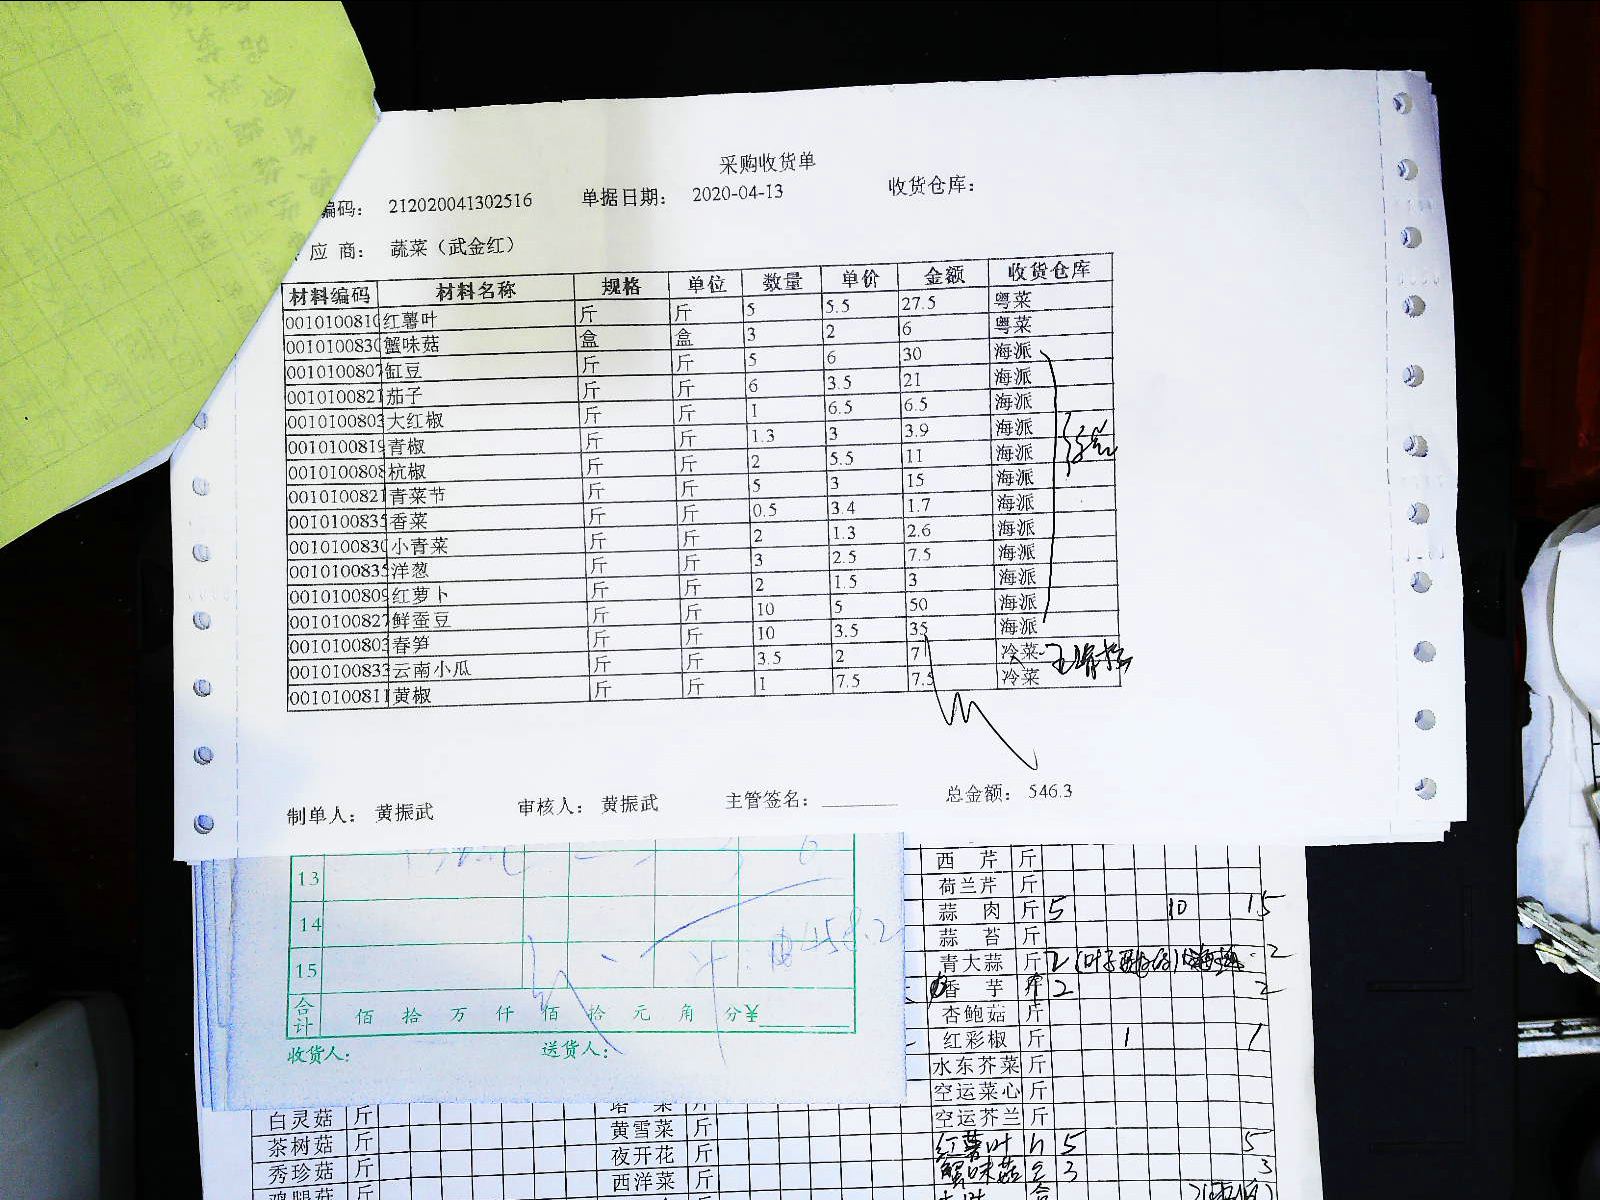 采购收货单
编码： 212020041302516 单据日期： 2020-04-13 收货仓库：
应 商： 蔬菜（武金红）
材料编码 材料名称 规格 单位 数量 单价 金额 收货仓库
0010100810 红薯叶 斤 斤 5 5.5 27.5 粤菜
0010100830 蟹味菇 盒 盒 3 2 6 粤菜
0010100807 缸豆 斤 斤 5 6 30 海派
0010100821 茄子 斤 斤 6 3.5 21 海派
0010100803 大红椒 斤 斤 1 6.5 6.5 海派
0010100819 青椒 斤 斤 1.3 3 3.9 海派
0010100808 杭椒 斤 斤 2 5.5 11 海派
0010100821 青菜节 斤 斤 5 3 15 海派
0010100835 香菜 斤 斤 0.5 3.4 1.7 海派
0010100830 小青菜 斤 斤 2 1.3 2.6 海派
0010100835 洋葱 斤 斤 3 2.5 7.5 海派
0010100809 红萝卜 斤 斤 2 1.5 3 海派
0010100827 鲜蚕豆 斤 斤 10 5 50 海派
0010100803 春笋 斤 斤 10 3.5 35 海派
0010100833 云南小瓜 斤 斤 3.5 2 7 冷菜
0010100811 黄椒 斤 斤 1 7.5 7.5 冷菜
制单人： 黄振武 审核人： 黄振武 主管签名： 总金额： 546.3
13
14
15
合计 佰 拾 万 仟 佰 拾 元 角 分¥
收货人： 送货人：
西 芹 斤
荷兰芹 斤
蒜 肉 斤 5 10 15
蒜 苔 斤
青大蒜 斤 2 2
香 芋 斤 2 2
杏鲍菇 斤
红彩椒 斤 1 1
水东芥菜 斤
空运菜心 斤
空运芥兰 斤
红薯叶 斤 5 5
蟹味菇 盒 3 3
白灵菇 斤
茶树菇 斤 黄雪菜 斤
秀珍菇 斤 夜开花 斤
鸡腿菇 斤 西洋菜 斤